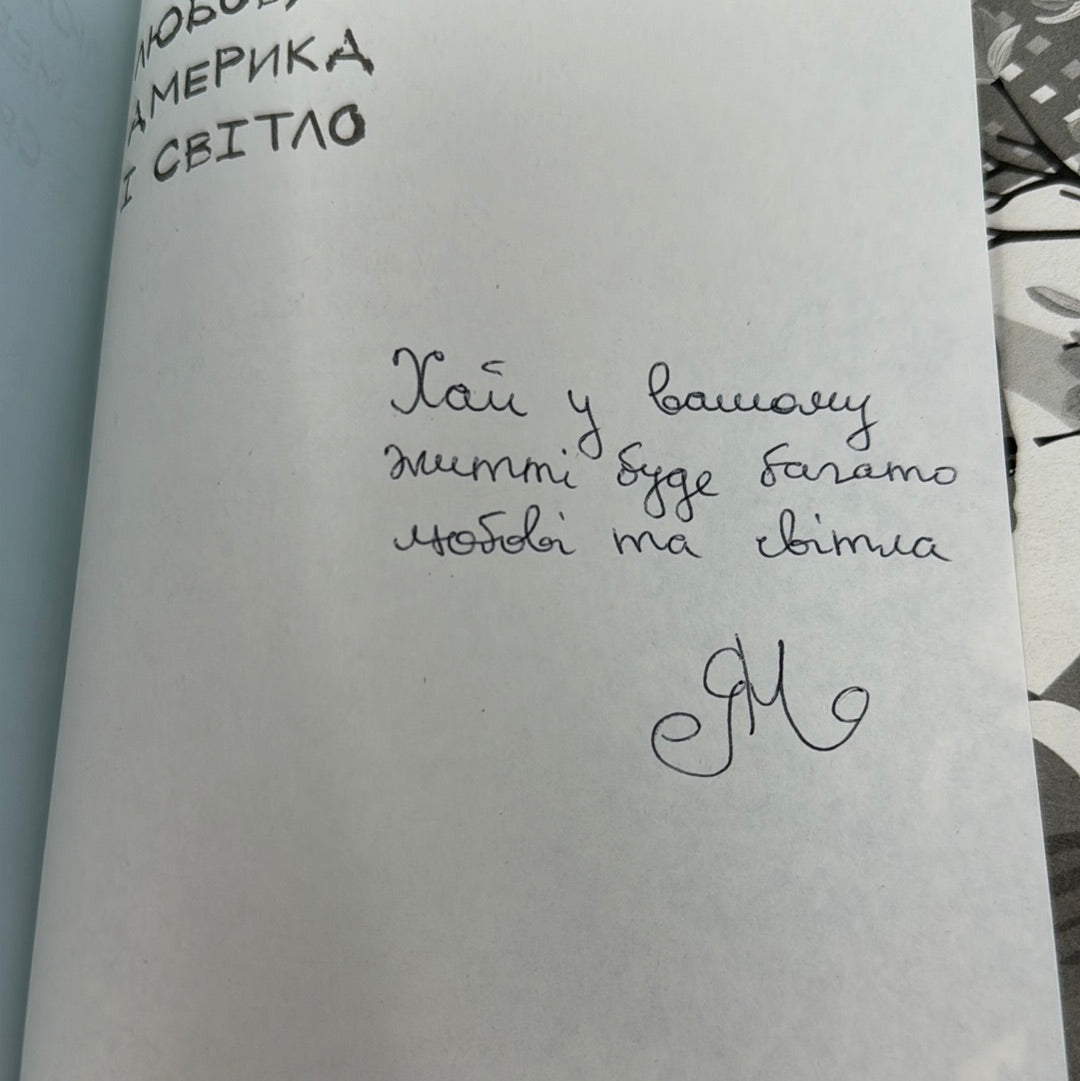 ЛЮБОВ,
АМЕРИКА
І СВІТЛО
Хай у вашому
житті буде багато
любові та світла
ЯМ